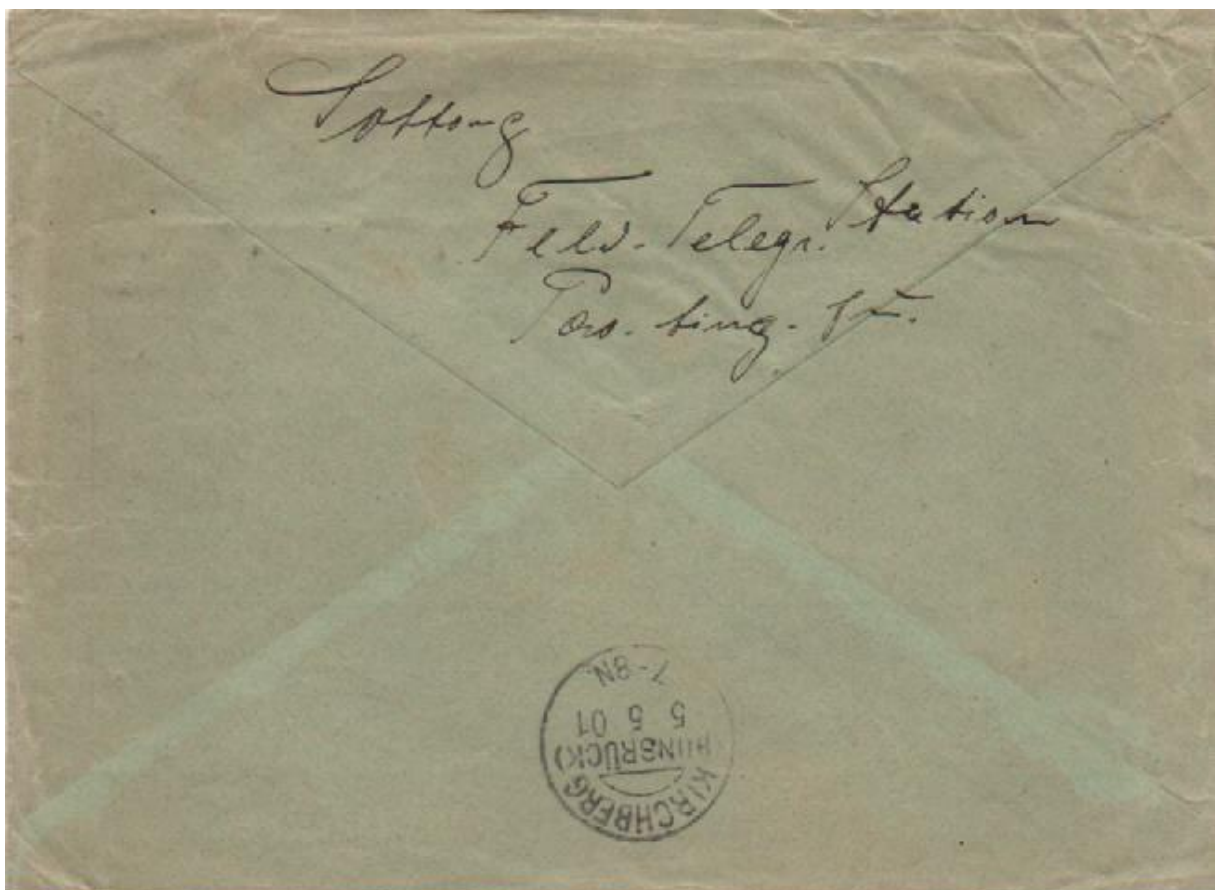 Sottong
Feld-Telegr. Station
Pao-ting-
KIRCHBERG
(HUNSRÜCK)
5 5 01
7-8N.